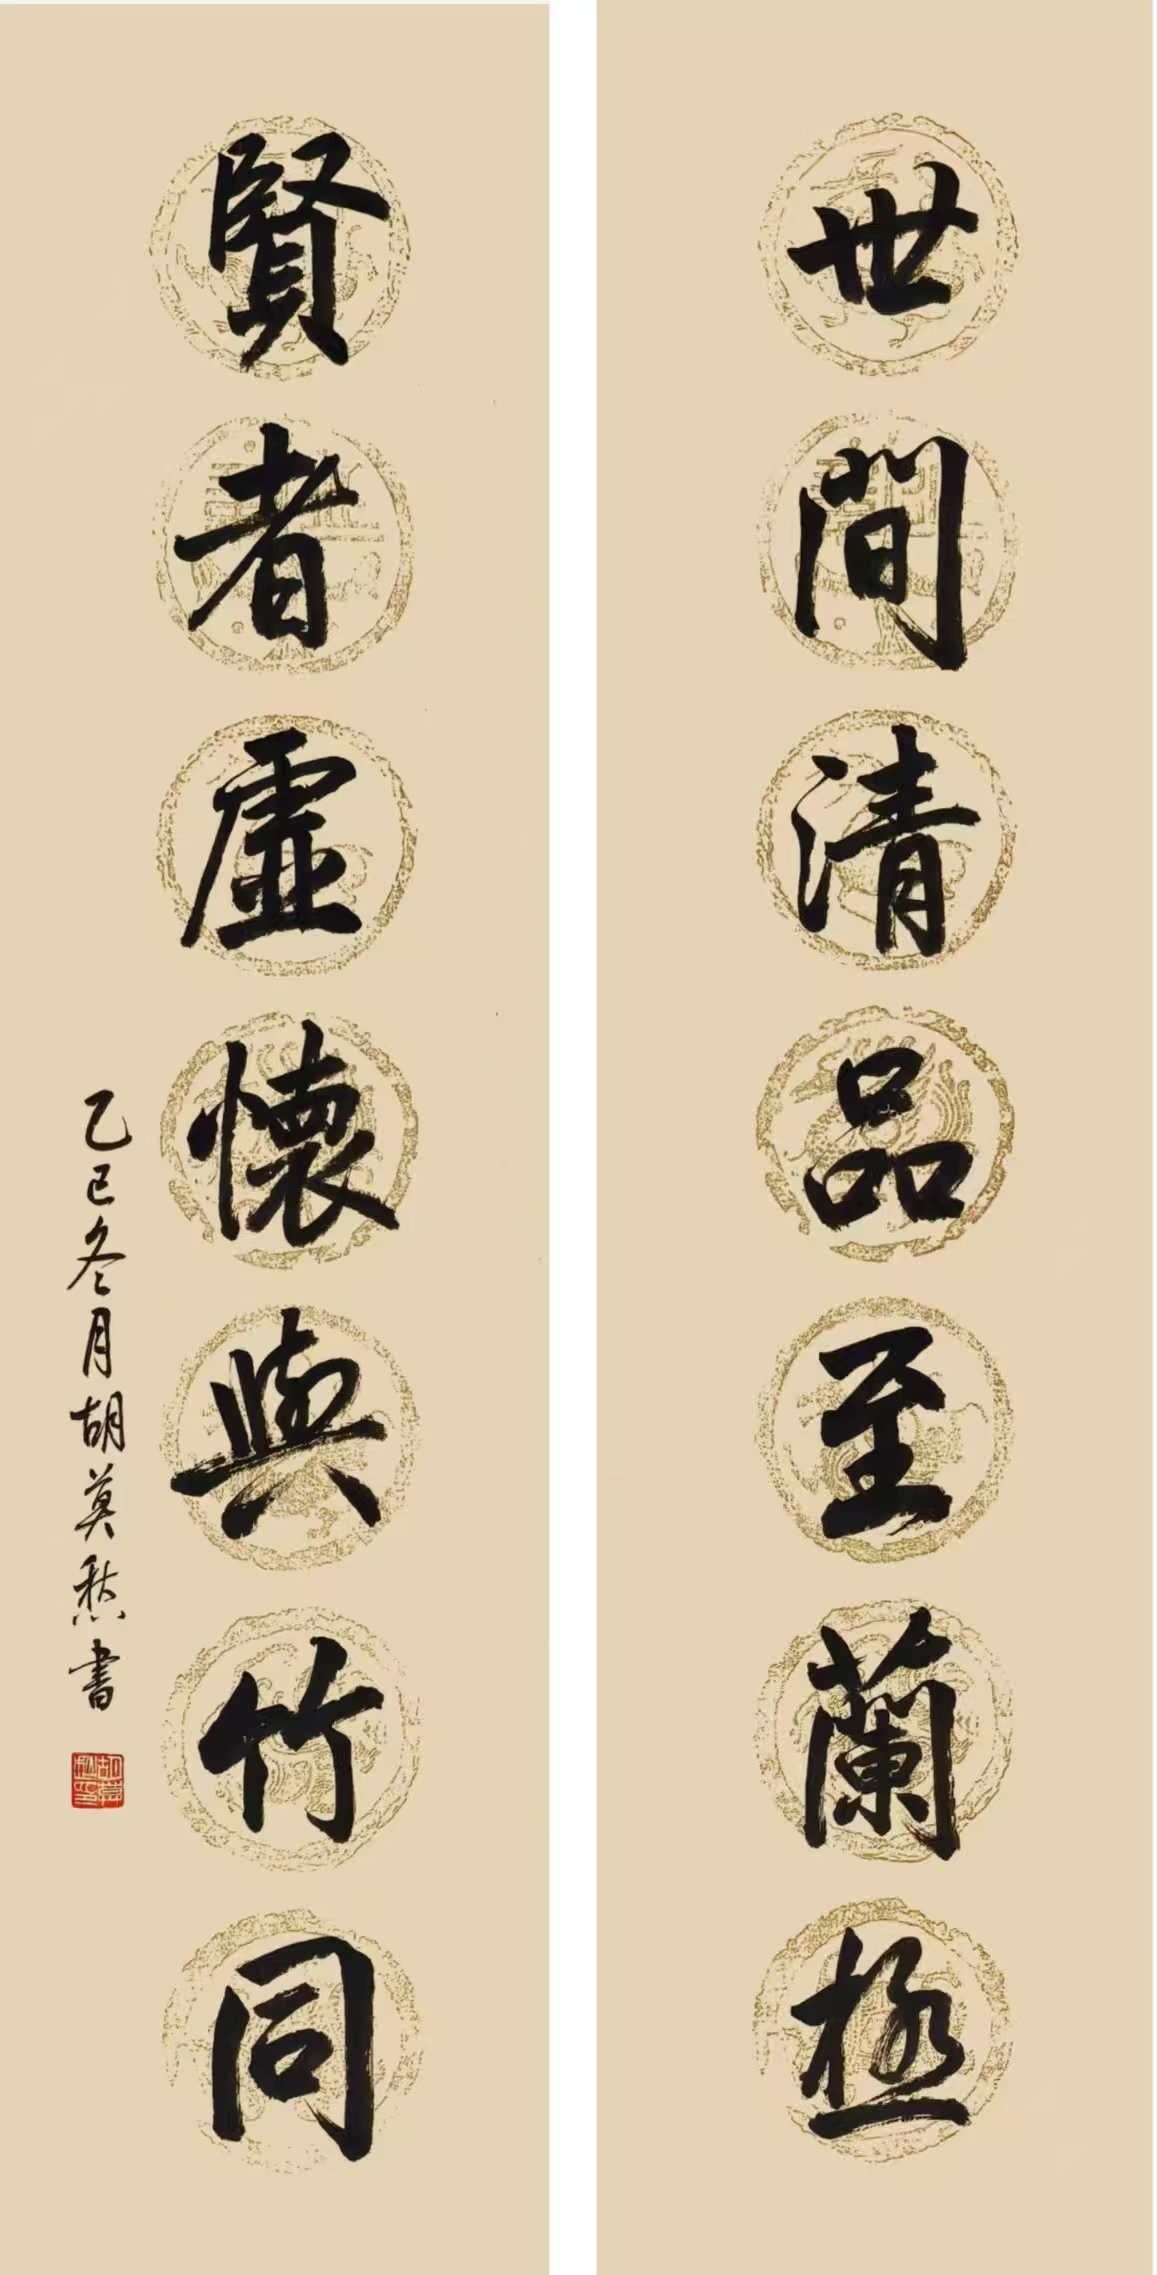 世間清品至蘭極
賢者虛懷與竹同
乙巳冬月胡莫愁書